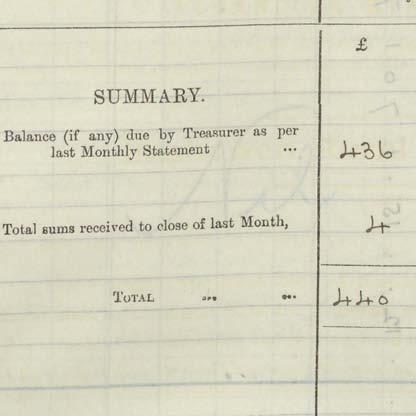 £
SUMMARY.
Balance (if any) due by Treasurer as per
last Monthly Statement ... 436
Total sums received to close of last Month, 4
TOTAL ... ... 440